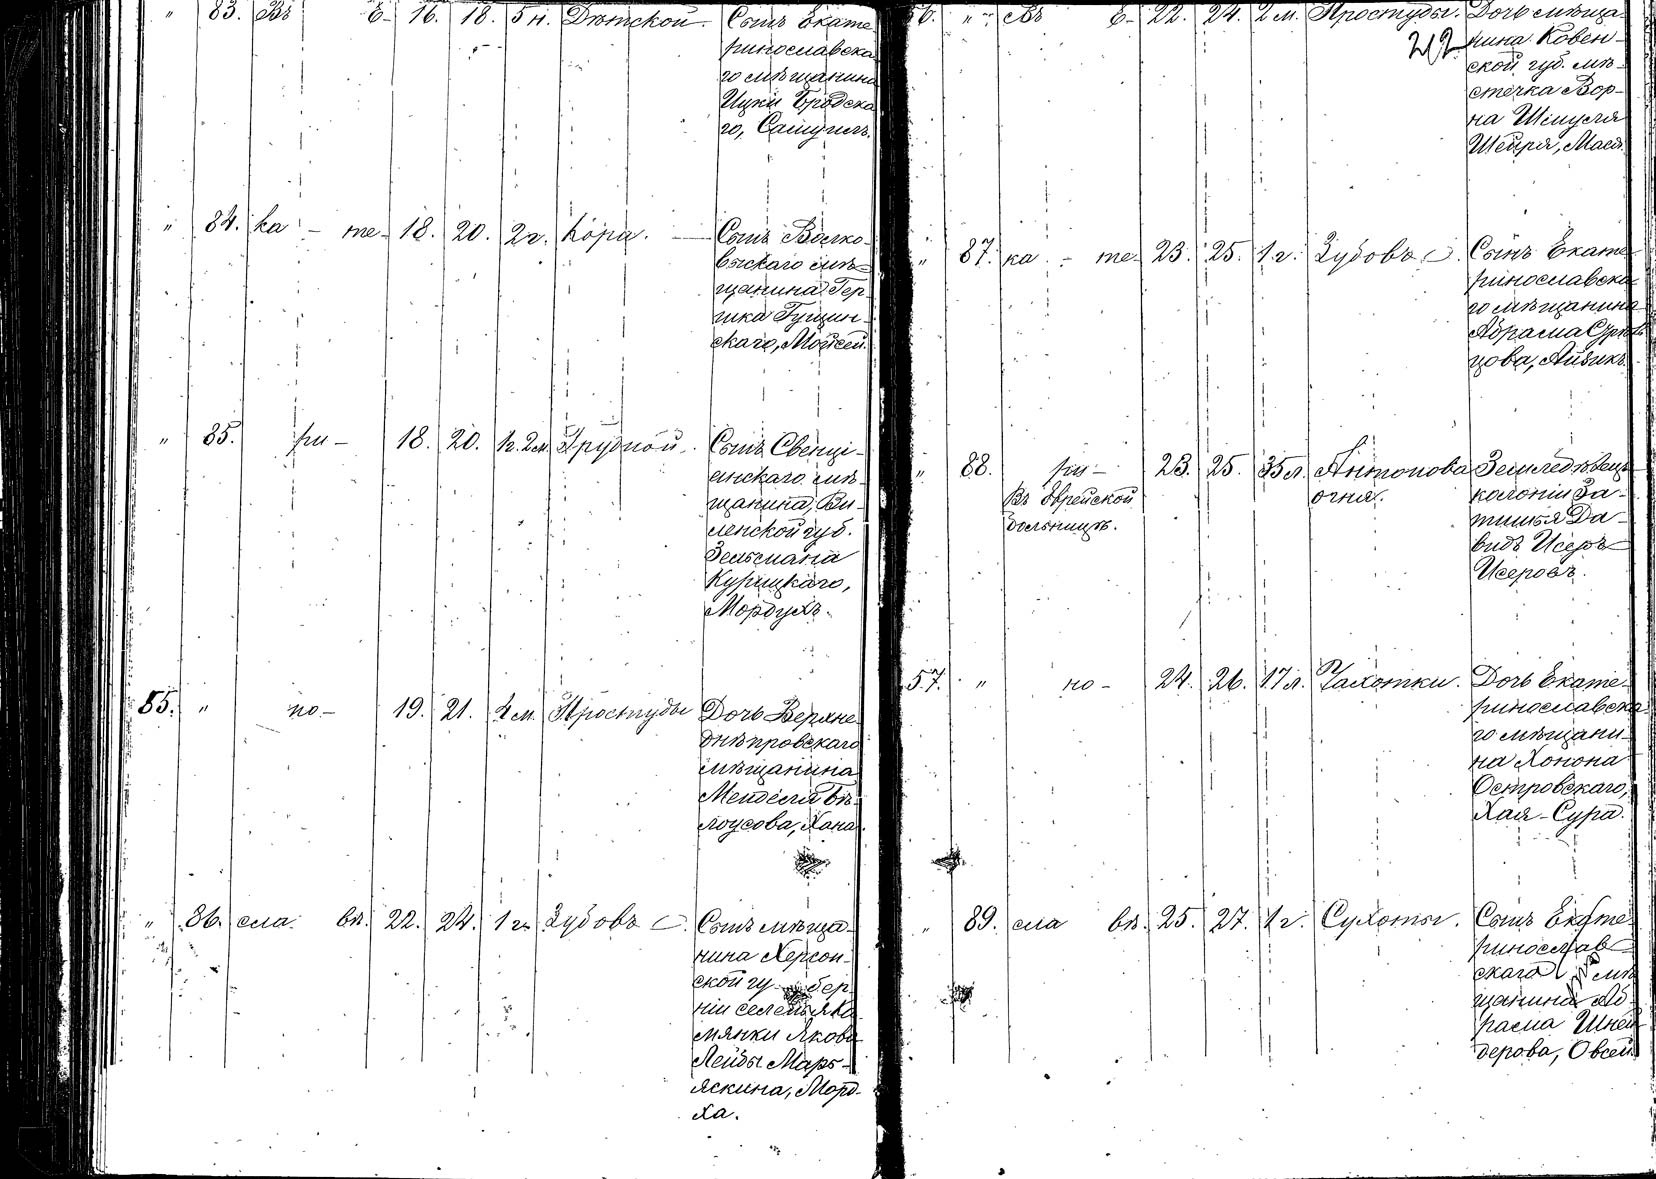 " 83. Въ Е- 16. 18. 5 н. Дѣтской. Сынъ Екате
ринославска
го мѣщанина
Ицки Бродска
го, Самуилъ.
" 84. ка - те- 18. 20. 2 г. Кора. — Сынъ Волко-
выскаго мѣ-
щанина Гер-
шка Гущин-
скаго, Мойсей.
" 85. ри- 18. 20. 1г. 2м. Грудной. Сынъ Свенці-
янскаго мѣ-
щанина, Ви-
ленской губ.
Зельмана
Курицкаго,
Мордухъ.
55. " но- 19. 21. 4 м. Простуды Дочь Верхне
днѣпровскаго
мѣщанина
Менделя Бѣ-
лоусова, Хана.
" 86. сла- вѣ. 22. 24. 1 г. Зубовъ Сынъ мѣща-
нина Херсон-
ской гу бер-
ніи селенья Ка
мянки Якова
Лейбы Марь-
яскина, Морд-
ха.
56. " Въ Е- 22. 24. 2 м. Простуды. Дочь мѣща-
212
нина Ковен-
ской губ. мѣ-
стечка Вор-
на Шмуля
Шейря, Мася.
" 87. ка - те- 23. 25. 1 г. Зубовъ Сынъ Екате-
ринославска-
го мѣщанина
Абрама
цова, Айзикъ.
" 88. ри- 23. 25. 35 л. Антонова Земледѣлецъ
Въ Еврейской огня. колоніи За-
больницѣ. тишья Да-
видъ Исеръ
Исеровъ.
57. " но- 24. 26. 17 л. Чахотки. Дочь Екате-
ринославска-
го мѣщани-
на Хонона
Островскаго,
Хая-Сура.
" 89. сла вѣ. 25. 27. 1 г. Сухоты. Сынъ Екате-
ринослав-
скаго мѣ
щанина Аб-
рама Шней-
дерова, Овсей.